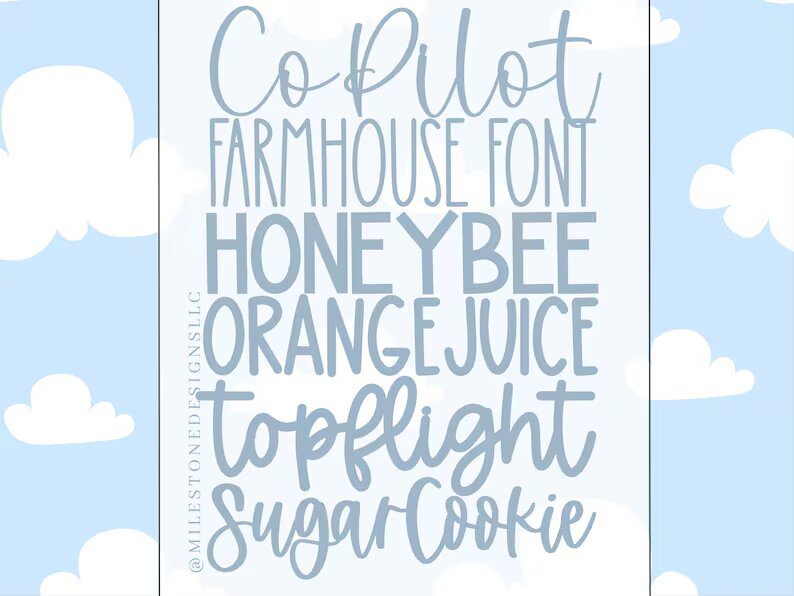 CoPilot
FARMHOUSE FONT
HONEYBEE
ORANGE JUICE
topflight
SugarCookie
@MILESTONEDESIGNSLLC